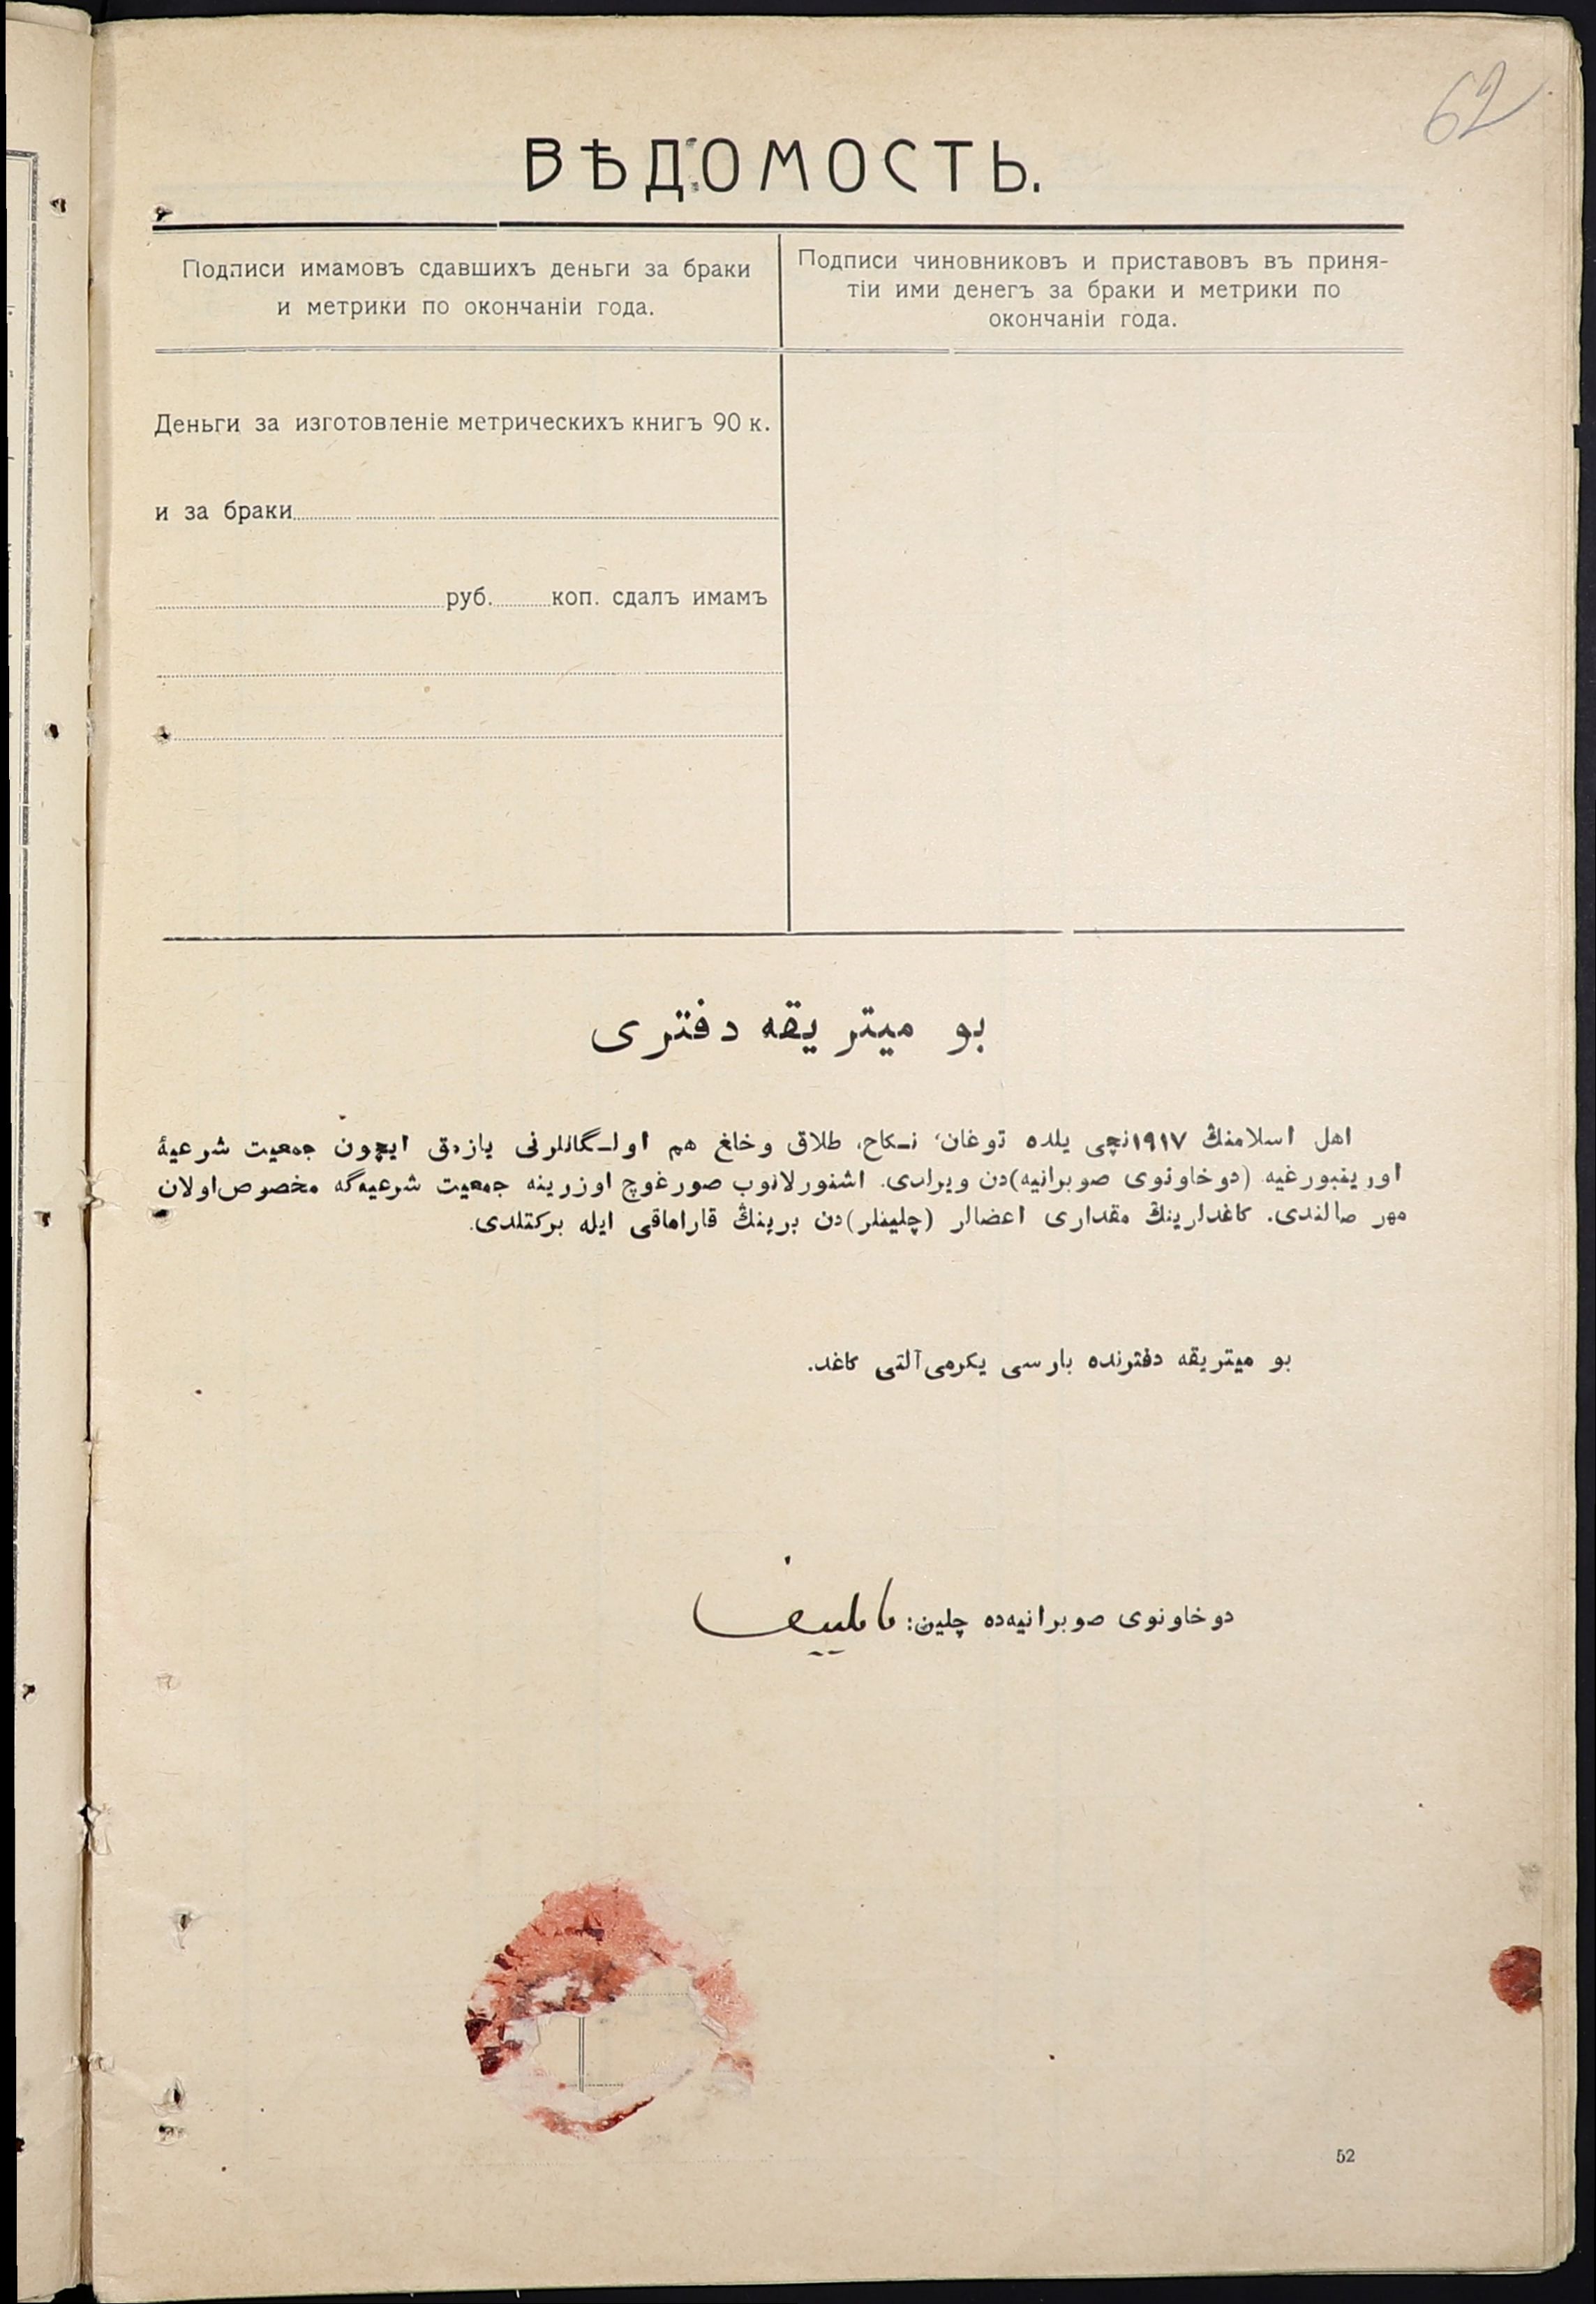 62
ВѢДОМОСТЬ.
Подписи имамовъ сдавшихъ деньги за браки
и метрики по окончаніи года.
Подписи чиновниковъ и приставовъ въ приня-
тіи ими денегъ за браки и метрики по
окончаніи года.
Деньги за изготовленіе метрическихъ книгъ 90 к.
и за браки
руб. коп. сдалъ имамъ
بو ميتريقه دفترى
اهل اسلامنڭ ۱۹۱۷نچى يلده توغان، نـكاح، طلاق وخلغ هم اولـگانلرنى يازمق ايچون جمعيت شرعيهٔ
اورينبورغيه (دوخاونوى صوبرانيه)دن ويرلدى. اشنورلانوب صورغوچ اوزرينه جمعيت شرعيه‌گه مخصوص اولان
مهر صالندى. كاغدلرينڭ مقدارى اعضالر (چلينلر)دن برينڭ قاراماقى ايله بركتلدى.
بو ميتريقه دفترنده بارسى يكرمى آلتى كاغد.
دوخاونوى صوبرانيه‌ده چلين:
52